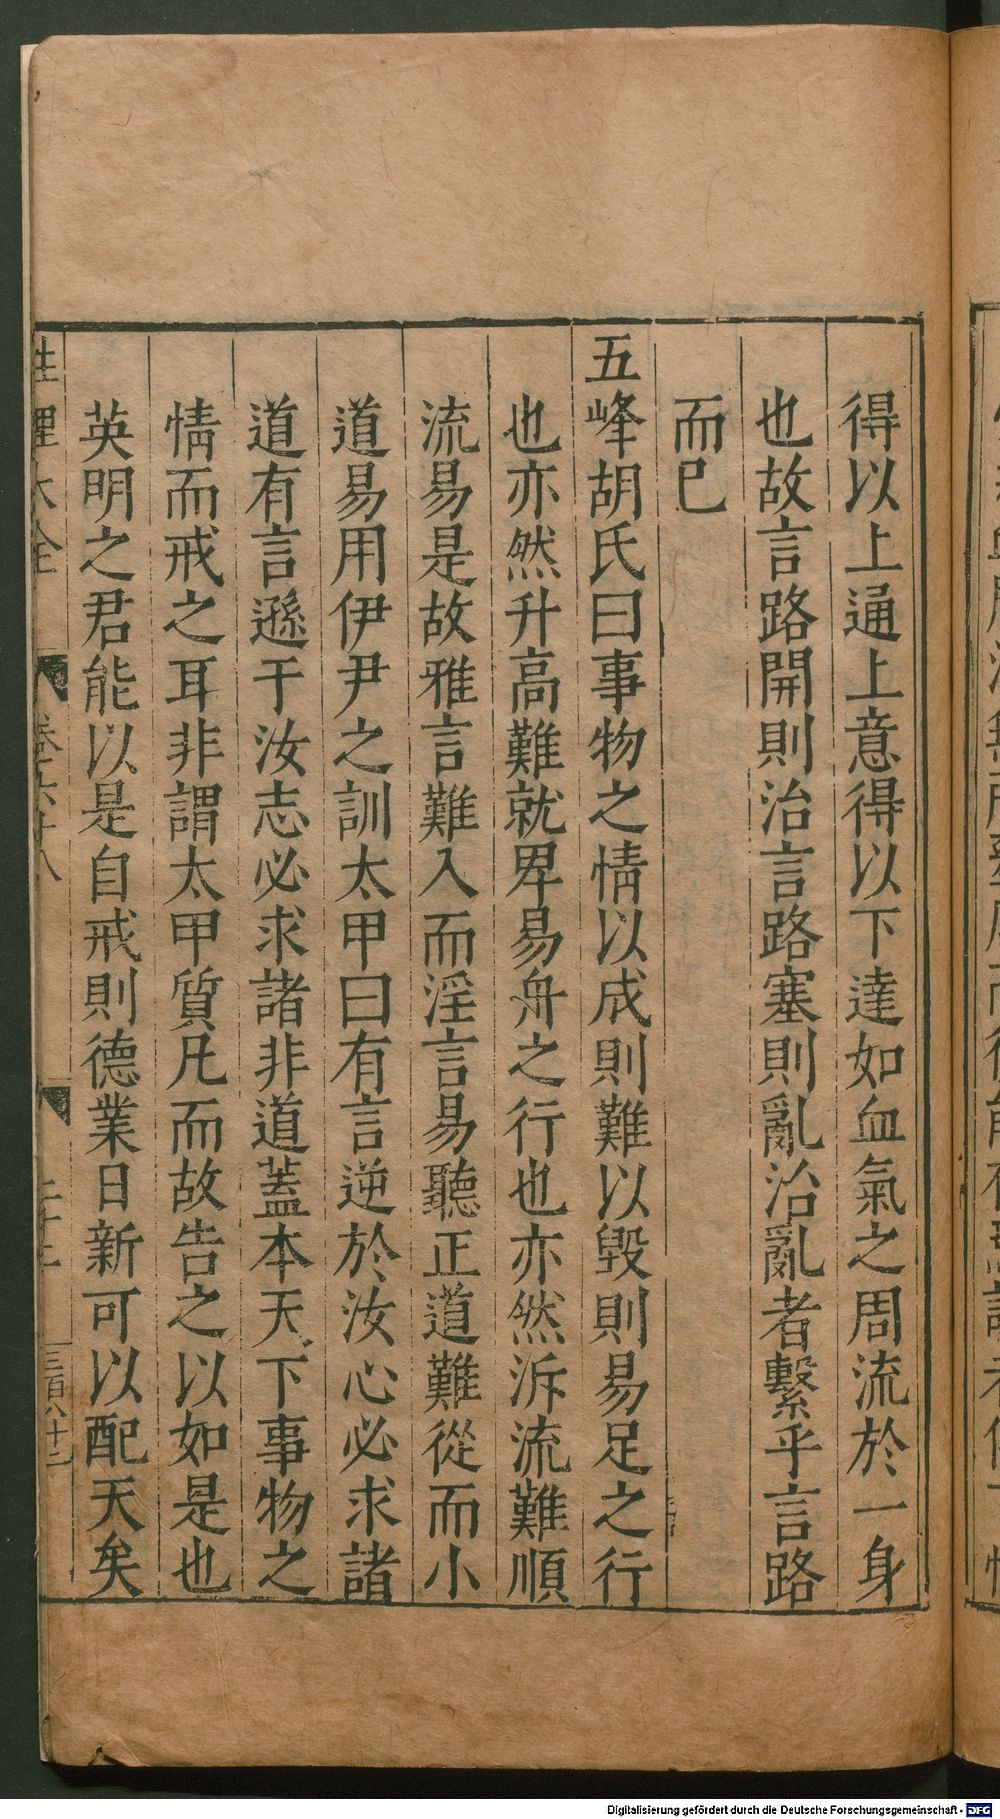 得以上通上意得以下達如血氣之周流於一身
也故言路開則治言路塞則亂治亂者繫乎言路
而已
五峰胡氏曰事物之情以成則難以毀則易足之行
也亦然升高難就卑易舟之行也亦然泝流難順
流易是故雅言難入而淫言易聽正道難從而小
道易用伊尹之訓太甲曰有言逆於汝心必求諸
道有言遜于汝志必求諸非道蓋本天下事物之
情而戒之耳非謂太甲質凡而故告之以如是也
英明之君能以是自戒則德業日新可以配天矣
性理大全
卷六十八
三百八十二
Digitalisierung gefördert durch die Deutsche Forschungsgemeinschaft - DFG